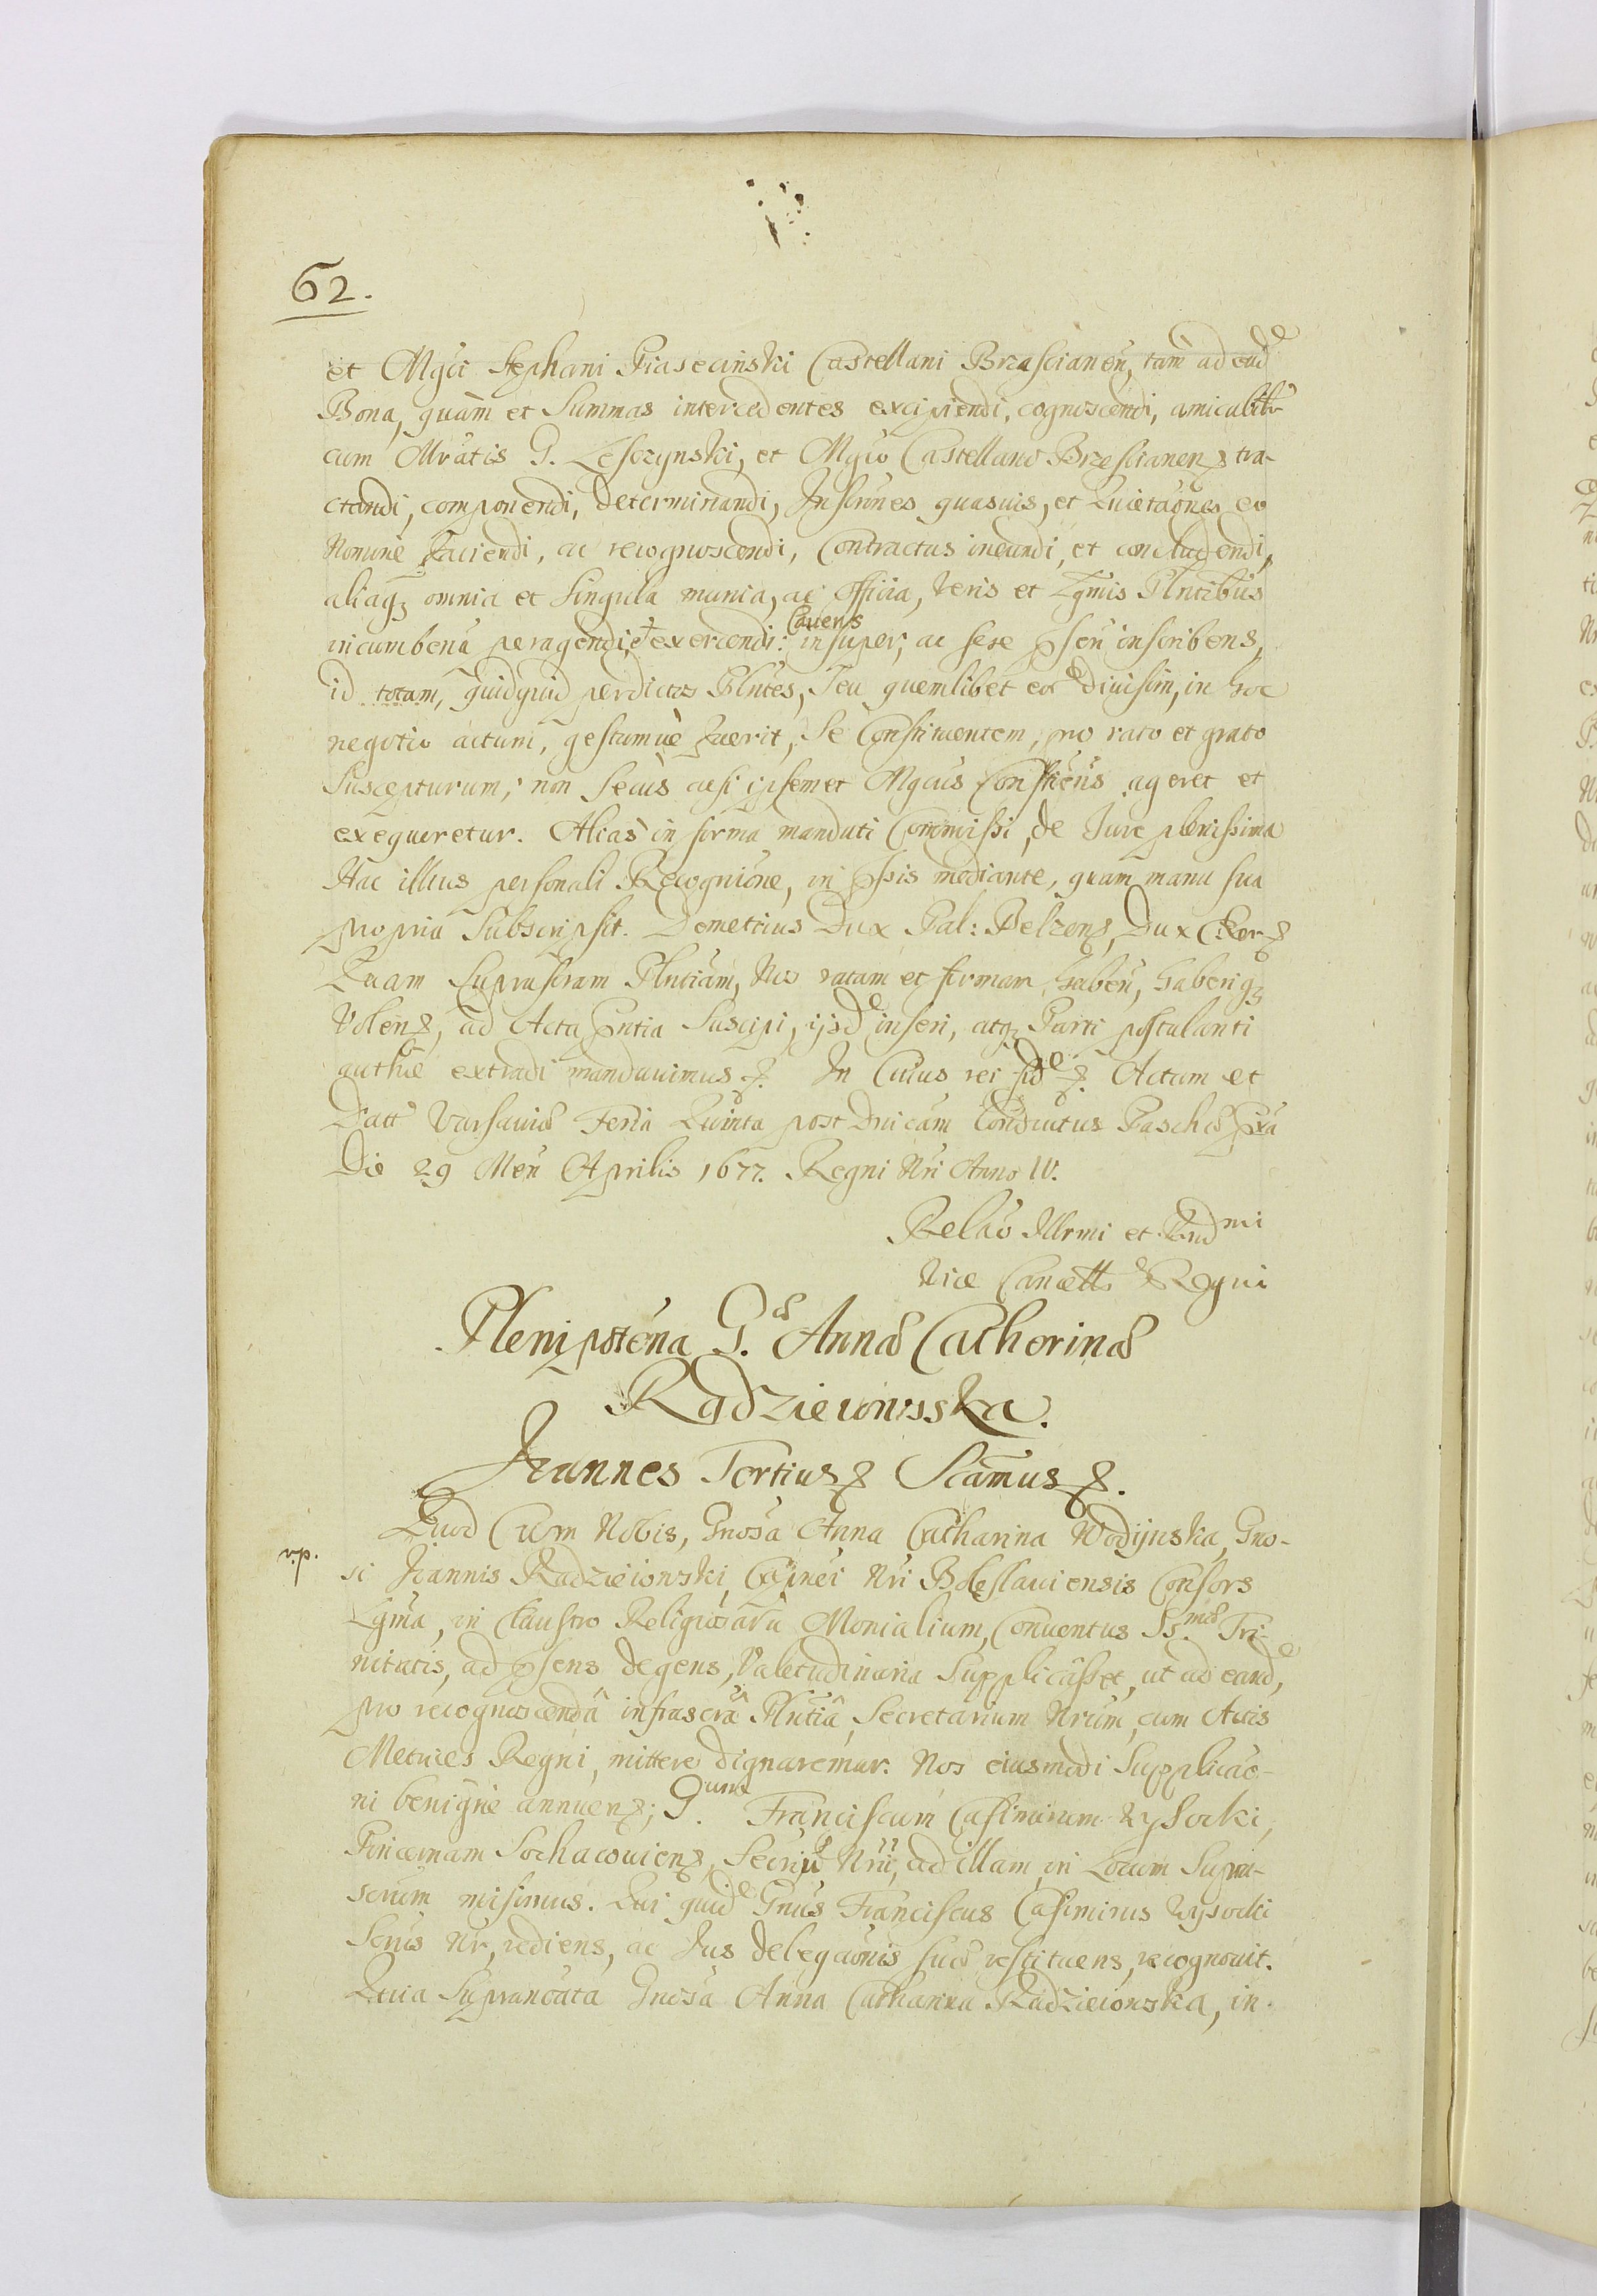 62.
et Mgci Stephani Piaseczinski Castellani Brzescianeñ, tam ad eãd
Bona, quàm et Summas intercedentes excipiendi, cognoscendi, amicabilr
cum Mratis G. Leszczynski, et Mgco Castellano Brzescianen̄ tra-
ctandi, componendi, determinandi, Inscriñes quasuis, et Quietãones eo
Nomine Faciendi, ac recognoscendi, Contractus ineundi, et concludendi,
aliaq omnia et singula munia, ac officia, veris et Lgmis Plntibus
incumbenã peragendi, et exercendi: Cauens insuper, ac sese pseñ inscribens,
id totum, quidquid perdictos Plntes, seu quemlibet eor diuisim, in hoc
negotio actum, gestumuè fuerit, se Constituentem, pro rato et grato
suscepturum, non secus acsi ipsemet Mgcus Constiens ageret et
exequeretur. Alias in forma mandati Commissi, de Jure plenissima
Hac illius personali Recognione, in pssis mediante, quam manu sua
propria Subscripsit. Demetrius Dux Pal: Belzen, Dux C Rer
Quam Suprascram Plntiam, Nos ratam et firmam habeñ, haberiq
Volen, ad Acta pntia Suscipi, ijsd inseri, atq Parti postulanti
authẽ extradi mandauimus. In Cuius rei fid. Actum et
Datt Varsauiæ Feria Quinta post Dnicam Conductus Paschæ pxa
Die 29 Meñ Aprilis 1677. Regni Nri Anno IV.
Relaõ Illrmi et Rnd mi
Vice Cancell Regni
Plenipotẽna G. Annæ Catherinæ
Radzieiowska.
Joannes Tertius Scamus.
Quod Cum Nobis, Gnosa Anna Catharina Wodijnska, Gno-
v.p.
si Joannis Radzieiowski, Capnei Nri Boleslauiensis Consors
Lgma, in Claustro Religiosarũ Monialium, Conuentus SS.mæ Tri-
nitatis, ad psens degens, Valetudinaria Supplicasset, ut ad eand,
pro recognoscenda infrascra Plntia, Secretarium Nrum, cum Actis
Metrices Regni, mittere dignaremur. Nos eiusmodi Supplicão-
ni benigne annuen; Gum Franciscum Casimirum Wysocki,
Pincernam Sochacouien, Secriũ Nrũ, ad illam, in Locum Supra-
scrum misimus. Qui quid Gnus Franciscus Casimirus Wysocki
Scrius Nr, rediens, ac Jus delegaõnis suæ restituens, recognouit.
Quia Supranoata Gnosa Anna Catharina Radzieiowska, in-